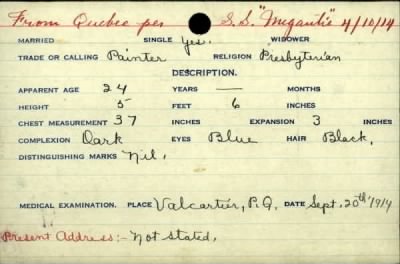 From Quebec per S.S. "Megantic" 4/10/14
MARRIED SINGLE Yes. WIDOWER
TRADE OR CALLING Painter RELIGION Presbyterian
DESCRIPTION.
APPARENT AGE 24 YEARS — MONTHS
HEIGHT 5 FEET 6 INCHES
CHEST MEASUREMENT 37 INCHES EXPANSION 3 INCHES
COMPLEXION Dark EYES Blue HAIR Black,
DISTINGUISHING MARKS Nil.
MEDICAL EXAMINATION. PLACE Valcartier, P.Q. DATE Sept. 20th 1914
Present Address:- Not stated.